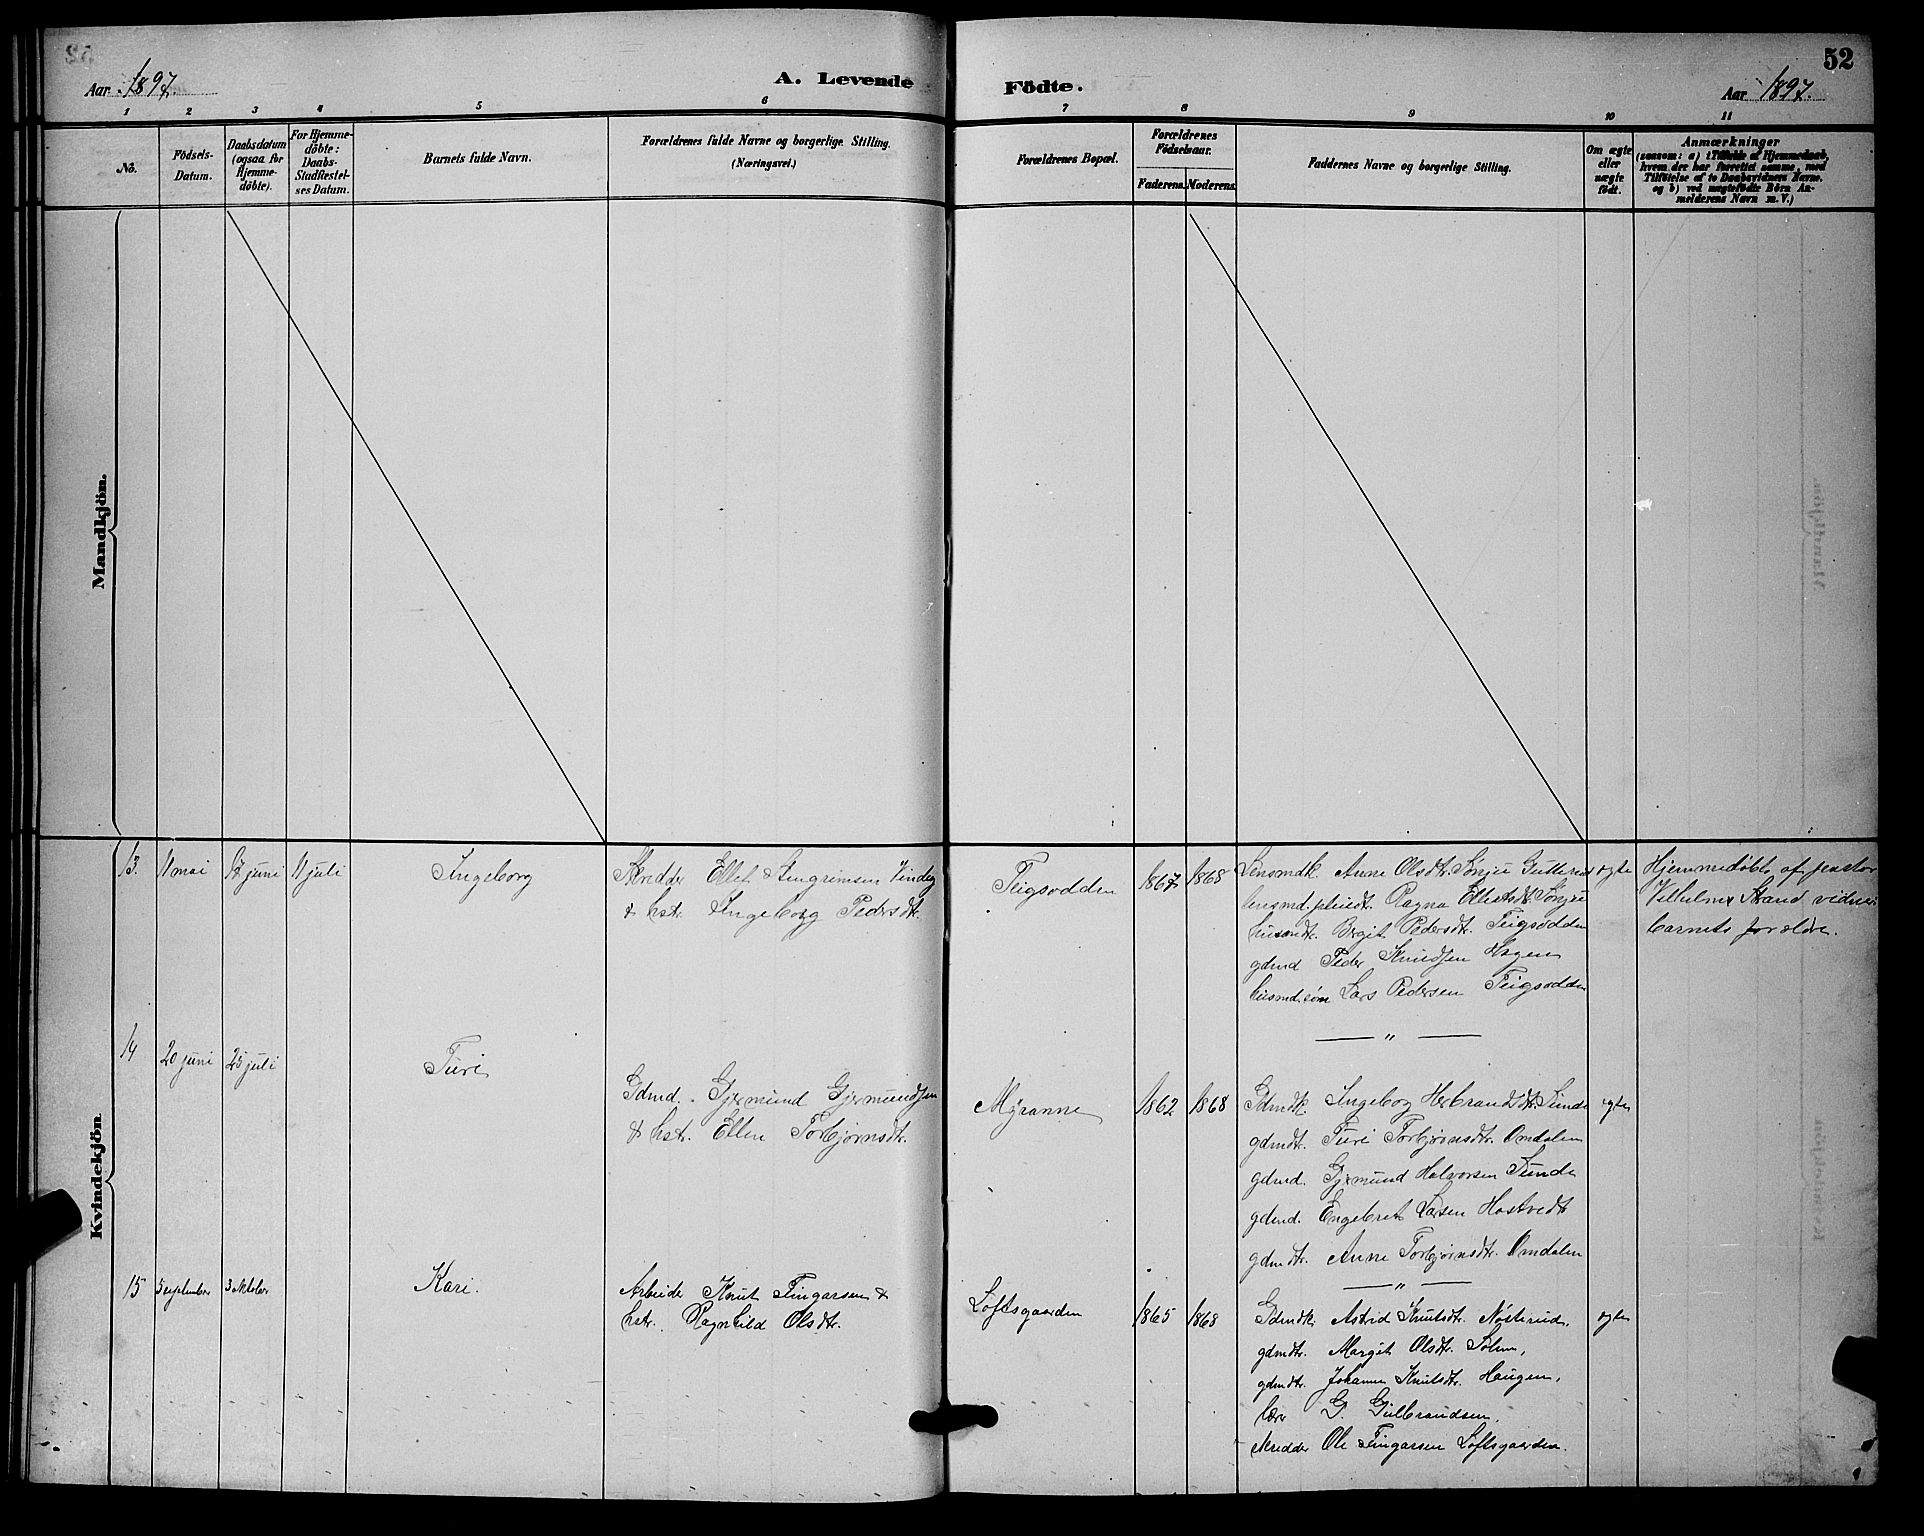 52
Aar 1897.
A. Levende
Födte.
Aar 1897.
1 2 3 4 5 6 7 8 9 10 11
No.
Födsels-
Datum.
Daabsdatum
(ogsaa for
Hjemme-
döbte).
For Hjemme-
döbte:
Daabs-
Stadfæstel-
ses Datum.
Barnets fulde Navn.
Forældrenes fulde Navne og borgerlige Stilling.
(Næringsvei.)
Forældrenes Bopæl.
Forældrenes
Födselsaar.
Faderens.
Moderens.
Faddernes Navne og borgerlige Stilling.
Om ægte
eller
uægte
födt.
Anmærkninger
(saasom: a) i Tilfælde af Hjemmedaab,
hvem der har forrettet samme, med
Tilföielse af to Daabsvidners Navne,
og b) ved uægtefödte Börn An-
melderens Navn m. V.)
Mandkjön.
Kvindekjön
13. 11 mai 17 juni 11 juli
Ingeborg
Skredder Ellef Stengrimsen Vindeg
& hst. Ingeborg Pedersdtr.
Teigsodden
1867 1868
Lensmdk. Anne Olsdtr. Sönju Gutterud
lensmd. pleiedt. Ragna Ellefsdt. Sönju
husmdt. Bergit Pedersdtr. Teigsodden
gdmd Peder Knudsen Hagen
husmd.söm Lars Pedersen Teigsodden
ægte
Hjemmedöbt af pastor
Vilhelm Strand vidner
barnets forældre.
— " —
14 20 juni 25 juli
Turi
Gdmd. Gjermund Gjermundsen
& hst. Ellen Torbjörnsdtr.
Myranne
1862 1868
Gdmdk. Ingeborg Herbrandsdtr. Sunde
gdmdt. Turi Torbjörnsdtr. Omdalen
gdmd. Gjermund Halvorsen Sunde
gdmd. Engebret Larsen Hostvedt
gdmdtr. Anne Torbjörnsdtr. Omdalen
ægte
— " —
15 5 september 3 oktober
Kari.
Arbeider Knut Fingarsen &
hst. Ragnhild Olsdtr.
Loftsgaarden
1865 1868
Gdmdk. Astrid Knutsdt. Nösterud,
gdmdtr. Margit Olsdtr.
gdmdtr. Johanne Knutsdtr. Haugen,
lær G. Gulbrandsen.
skredder Ole Fingarsen Loftsgaarden.
ægte